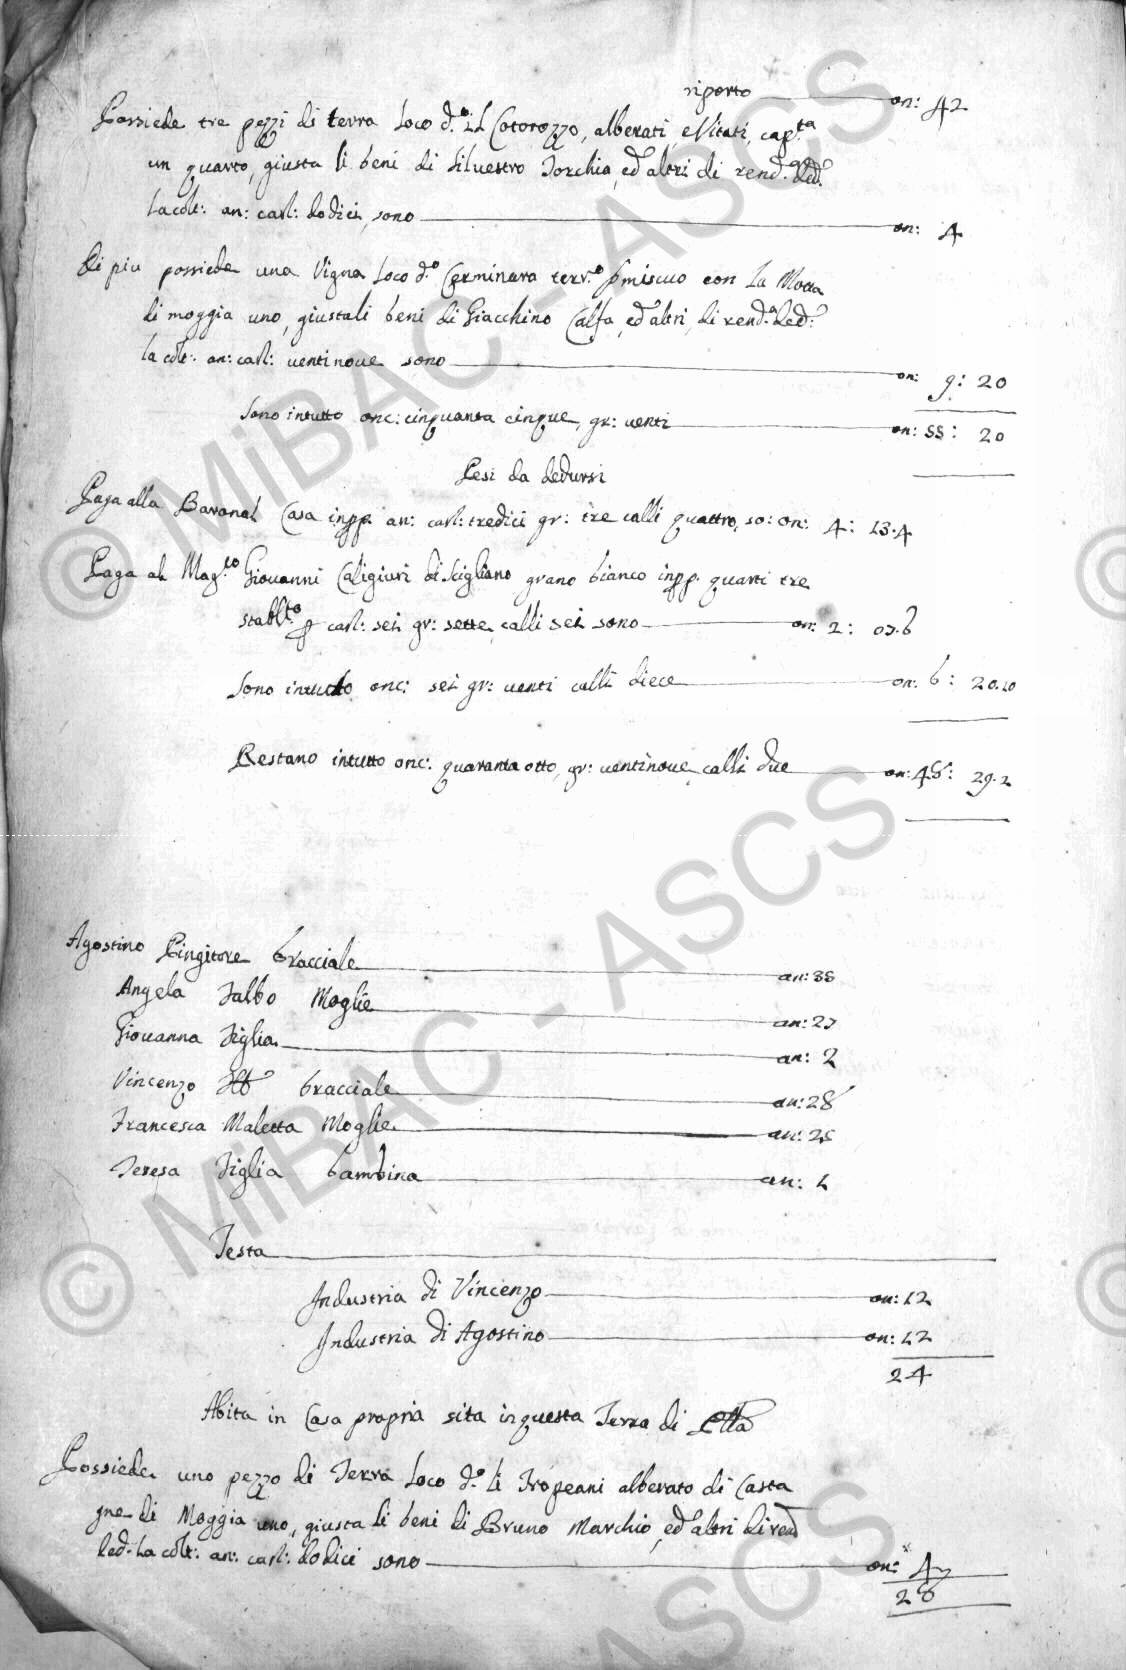 riporto on: 42
Possiede tre pezzi di terra loco d.º il Cotorozzo, alberati, e Vitati, cap.ta
un quarto, giusta li beni di Silvestro Torchia, ed altri di rend.ª ded.ª
la colt: an: carl: dodici, sono on: 4
Di piu possiede una Vigna loco d.º Carminura terr.º pmiscuo con la Motta
di moggia uno, giusta li beni di Giacchino Calfa, ed altri, di rend.ª ded:ª
la colt: an: carl: ventinove sono on: 9: 20
Sono intutto onc: cinquanta cinque, gr: venti on: 55: 20
Pesi da dedursi
Paga alla Baronal Casa inpp. an: carl: tredici gr: tre calli quattro, so: on: 4: 13.4
Paga al Mag.co Giovanni Caligiuri di Scigliano grano bianco inpp. quarti tre
stabl.to p carl: sei gr: sette, calli sei sono on: 2: 07.6
Sono intutto onc: sei gr: venti calli diece on: 6: 20.10
Restano intutto onc: quaranta otto, gr: ventinove, calli due on: 48: 29.2
Agostino Pingitore bracciale an: 35
Angela Talbo Moglie an: 27
Giovanna figlia an: 2
Vincenzo bracciale an: 28
Francesca Maletta Moglie an: 25
Teresa figlia bambina an: 1
Testa
Industria di Vincenzo on: 12
Industria di Agostino on: 12
24
Abita in Casa propria sita in questa Terra di
Possiede uno pezzo di Terra loco d.º li Tropeani alberato di Casta
gne di Moggia uno, giusta li beni di Bruno Marchio, ed altri di rend
ded. la colt: an: carl: dodici sono on: 4
28
© MiBAC - ASCS
© MiBAC - ASCS
ASCS